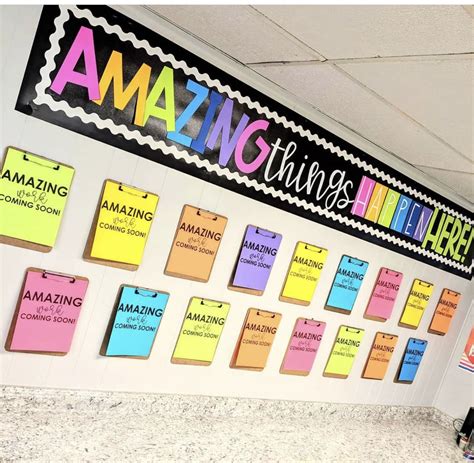 AMAZING things HAPPEN HERE!
AMAZING
work
COMING SOON!
AMAZING
work
COMING SOON!
AMAZING
work
COMING SOON!
AMAZING
work
COMING SOON!
AMAZING
work
COMING SOON!
AMAZING
work
COMING SOON!
AMAZING
work
COMING SOON!
AMAZING
work
COMING SOON!
AMAZING
work
COMING SOON!
AMAZING
work
COMING SOON!
AMAZING
work
COMING SOON!
AMAZING
work
COMING SOON!
AMAZING
work
COMING SOON!
AMAZING
work
COMING SOON!
AMAZING
work
COMING SOON!
AMAZING
work
COMING SOON!
AMAZING
work
COMING SOON!